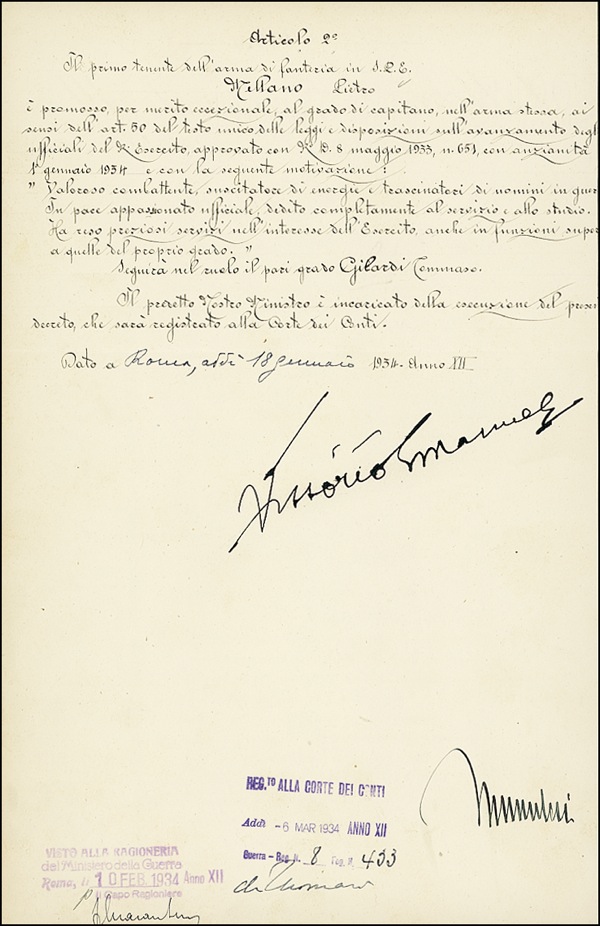 Articolo 2º
Il primo tenente dell'arma di fanteria in S.P.E.
Millano Pietro
è promosso, per merito eccezionale, al grado di capitano, nell'arma stessa, ai
sensi dell'art. 50 del testo unico delle leggi e disposizioni sull'avanzamento degli
ufficiali del R. Esercito, approvato con R. D. 8 maggio 1933, n. 651, con anzianità
1º gennaio 1934 e con la seguente motivazione:
"Valoroso combattente, suscitatore di energie e trascinatore di uomini in guer
In pace appassionato ufficiale, dedito completamente al servizio e allo studio.
Ha reso preziosi servizi nell'interesse dell'Esercito, anche in funzioni super
a quelle del proprio grado."
Seguirà nel ruolo il pari grado Gilardi Tommaso.
Il predetto Nostro Ministro è incaricato della esecuzione del presen
decreto, che sarà registrato alla Corte dei Conti.
Dato a Roma, addì 18 gennaio 1934. Anno XII
Vittorio Emanuele
REG.TO ALLA CORTE DEI CONTI
Addì -6 MAR 1934 ANNO XII
Guerra - Reg. N. 8 Fog. N. 433
VISTO ALLA RAGIONERIA
del Ministero della Guerra
Roma, li 10 FEB 1934 Anno XII
Il Capo Ragioniere